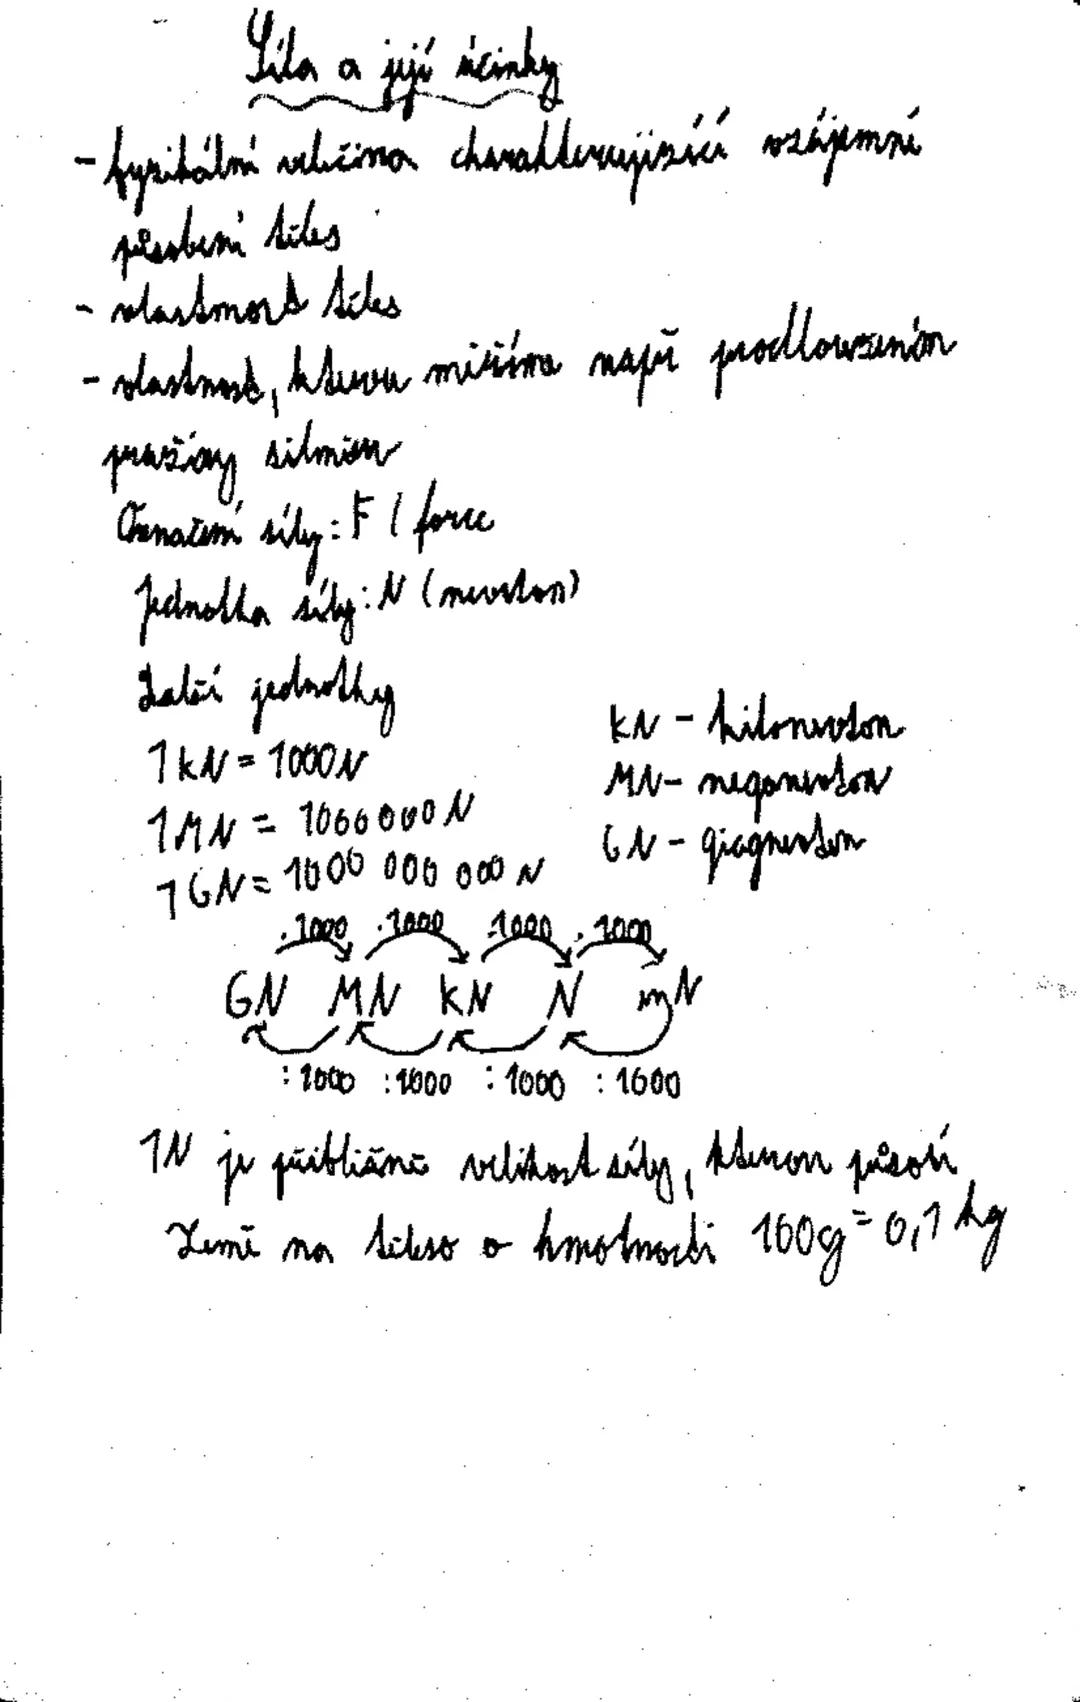 Síla a její účinky
- fyzikální veličina charakterizující vzájemné
působení těles
- vlastnost těles
- vlastnost, kterou měříme např prodloužením
pružiny silměr
Označení síly: F ( force
Jednotka síly: N (newton)
Další jednotky
1 kN = 1000N
kN - kilonewton
1MN = 1000000N
MN - meganewton
1GN = 1000 000 000 N
GN - giganewton
.1000 .1000 .1000 .1000
GN MN kN N mN
:1000 :1000 :1000 :1000
1N je přibližně velikost síly, kterou působí
Země na těleso o hmotnosti 100g = 0,1 kg